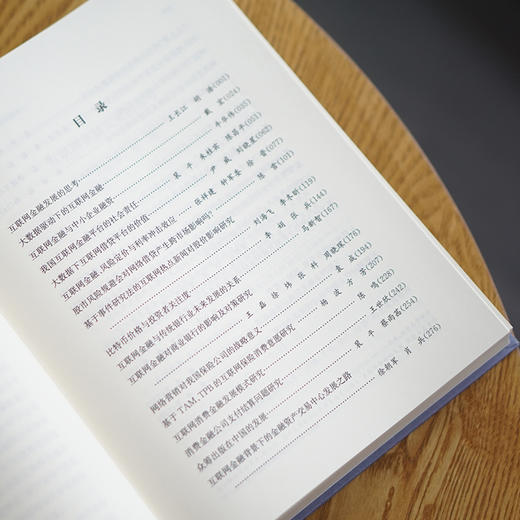 目 录
互联网金融发展的思考……王长江 胡 (001)
大数据驱动下的互联网金融……戴 (024)
互联网金融与中小企业融资……牛华伟(035)
我国互联网金融平台的社会责任……裴 平 朱桂宾 陈昌平
大数据下互联网借贷平台的价值……尹 威 刘晓星(062)
互联网金融、风险定价与利率冲击效应……张祥建 钟军委 徐 晋(077)
股市风险规避会对网络借贷产生跨市场影响吗?……陈 雪(101)
基于事件研究法的互联网热点新闻对股价影响研究……刘海飞 李冬昕(119)
比特币价格与投资者关注度……李 娟 张 兵(144)
互联网金融与传统银行业未来发展的关系……马新智(167)
互联网金融对商业银行的影响及对策研究……王 磊 徐 炜 张 科 周晓琛(176)
网络营销对我国保险公司的战略意义……袁 威(194)
基于TAM、TPB的互联网保险消费意愿研究……杨 波 方 芳(207)
互联网消费金融发展模式研究……陈 鸣(228)
消费金融公司支付结算问题研究……王世钦(242)
众筹出版在中国的发展……裴 平 蔡雨茜(254)
互联网金融背景下的金融资产交易中心发展之路……徐朝军 肖 兵(276)